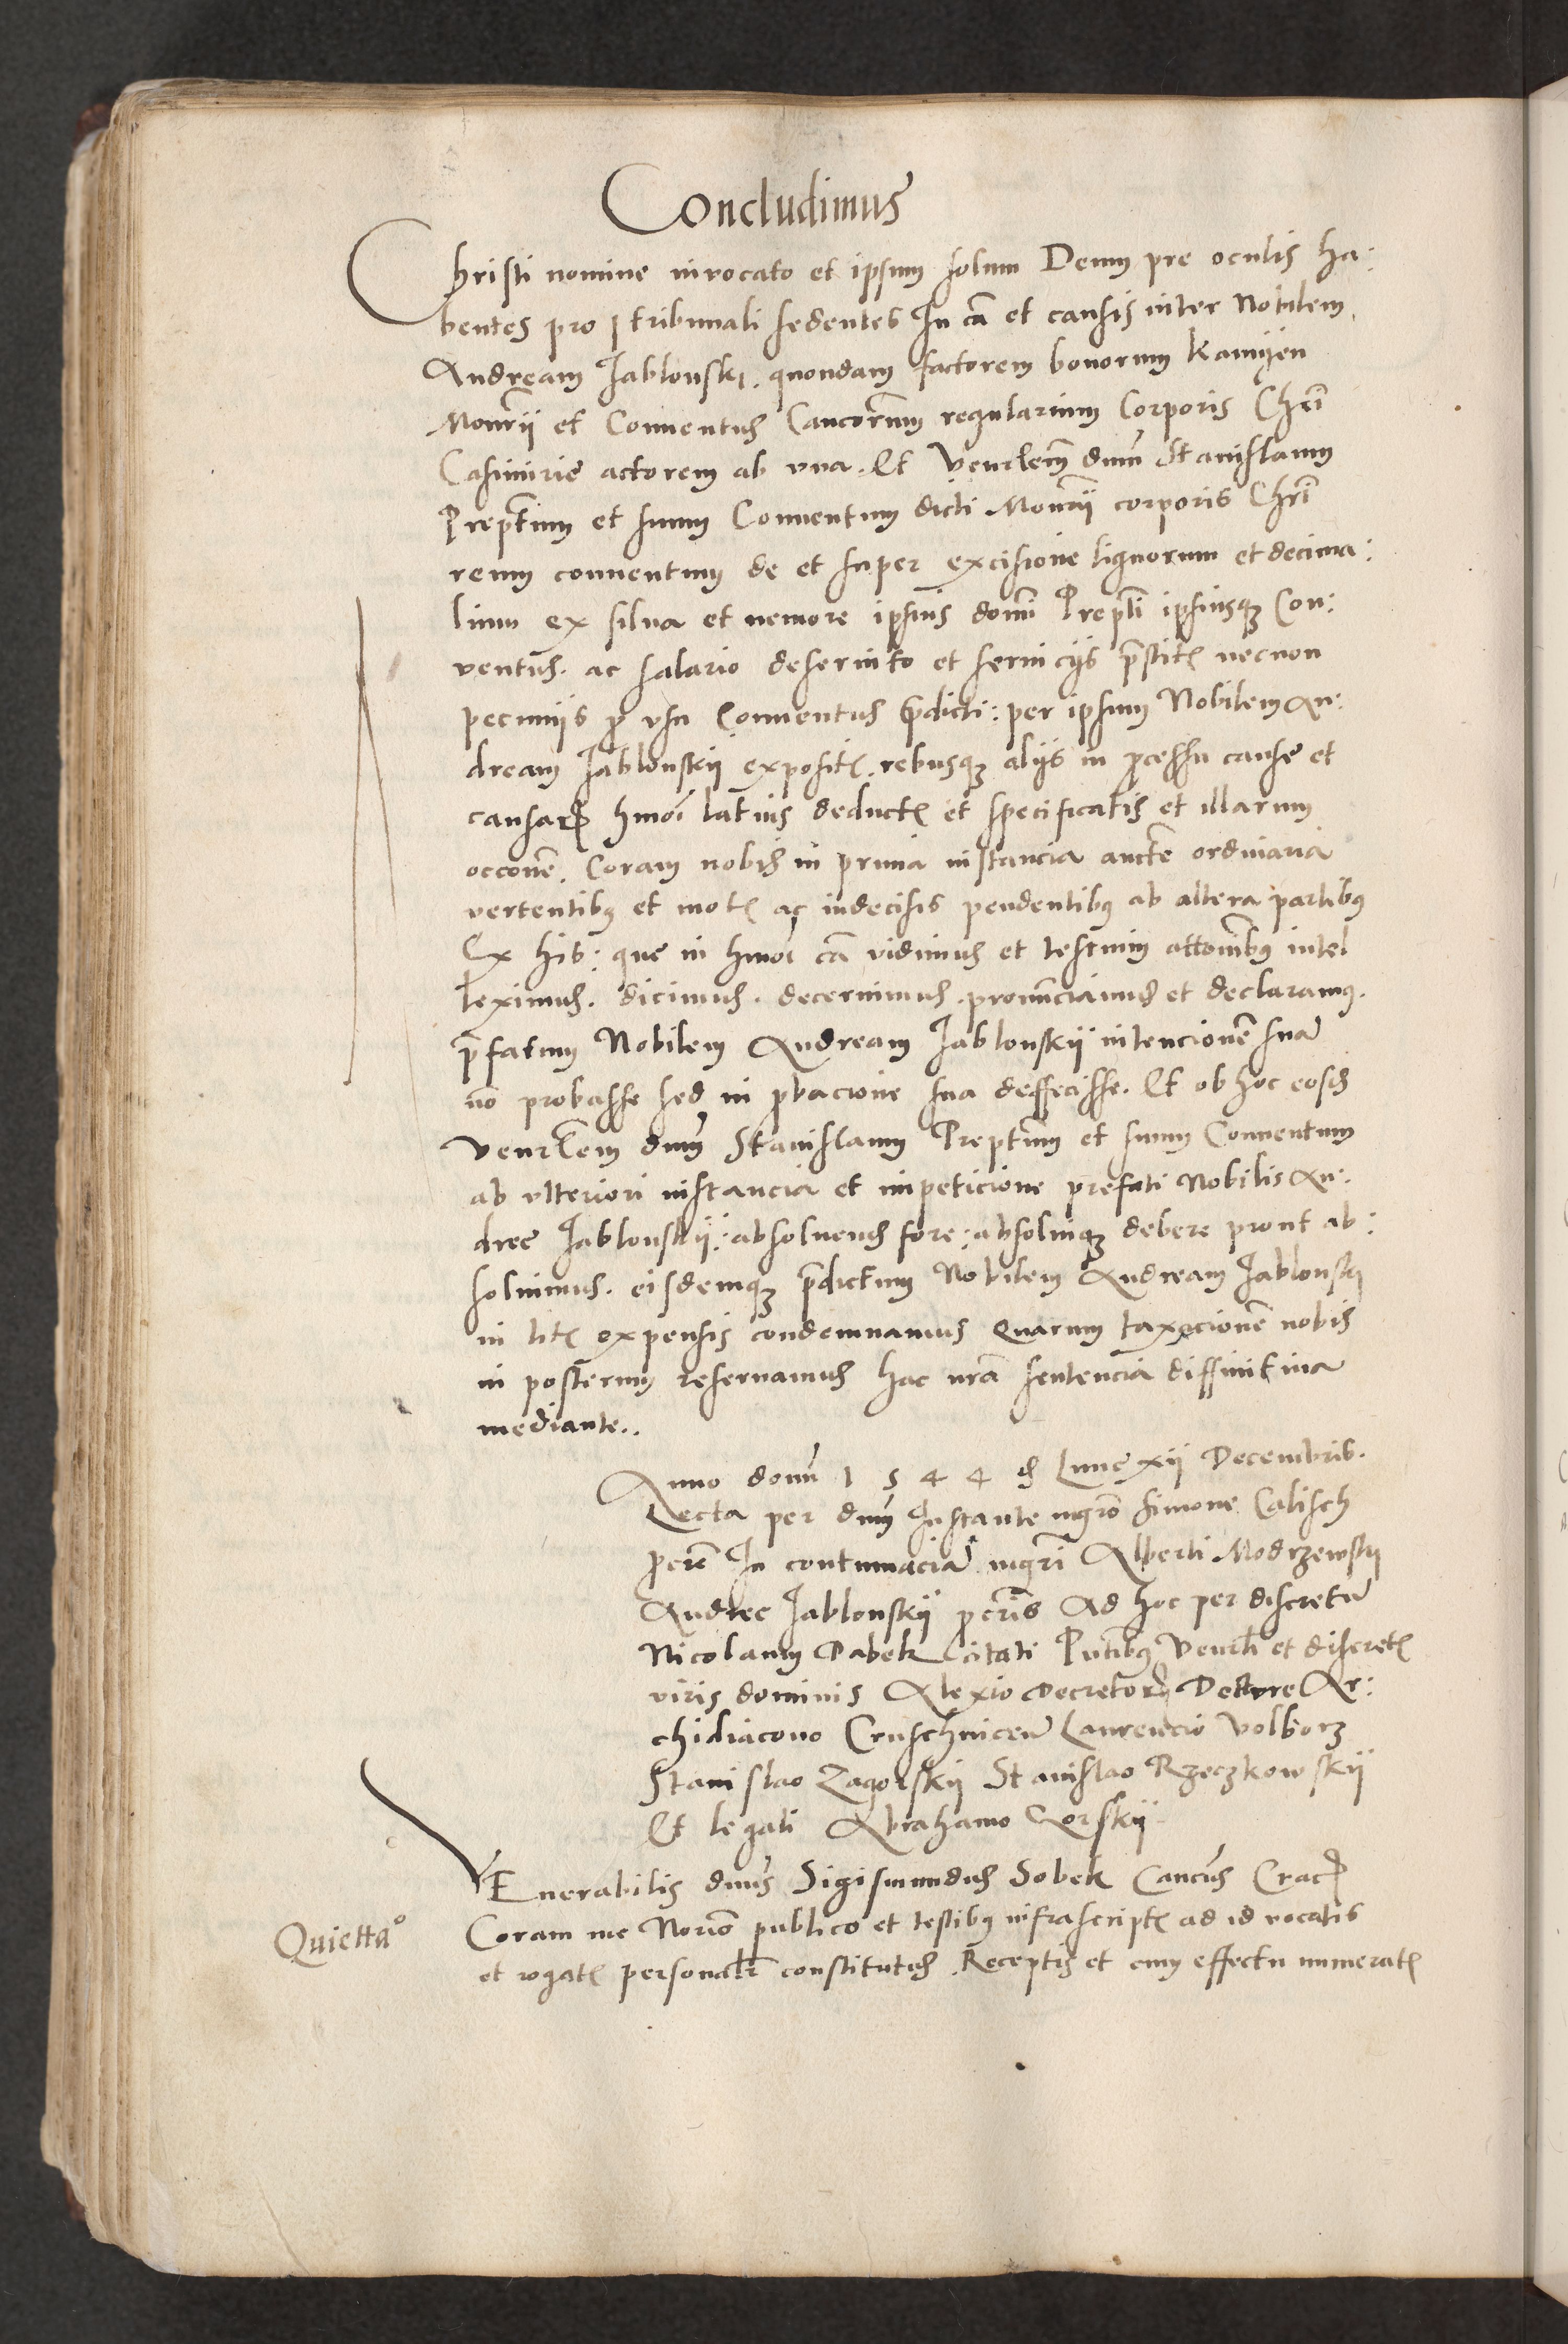 Concludimus
Christi nomine invocato et ipsum solum Deum pre oculis ha:
bentes pro tribunali sedentes In ca et causis inter Nobilem
Andream Jablonski. quondam factorem bonorum Kamyen
Monrii et Conventus Cancorum regularium Corporis Chri
Casimirie actorem ab una. Et Venrlem dnum Stanislaum
Prepttum et suum Conventum dicti Monrii corporis Chri
reum conventum de et super excisione lignorum et decima:
lium ex silva et nemore ipsius domi Prepti ipsiusq Con:
ventus. ac salario deservito et serviciis prestit necnon
pecuniis p usu Conventus predicti: per ipsum Nobilem An:
dream Jablonskii exposit. rebusq aliis in processu cause et
causar hmoi latius deduct et specificatis et illarum
occone. Coram nobis in prima instancia aucte ordinaria
vertentibus et mot ac indecisis pendentibus ab altera partibus
Ex his: que in hmoi ca vidimus et testium attonibus intel
leximus. dicimus. decernimus. pronunciamus et declaramus.
prefatum Nobilem Andream Jablonskii intencionem sua
no probasse sed in probacione sua deffecisse. Et ob hoc eosd
Venrlem dnum Stanislaum Prepttum et suum Conventum
ab ulteriori instancia et impeticione prefati Nobilis An:
dree Jablonskii: absolvend fore: absolviq debere prout ab:
solvimus. eisdemq predictum Nobilem Andream Jablonsky
in lit expensis condemnamus Quarum taxacionem nobis
in posterum reservamus hac nra sentencia diffinitiva
mediante..
Anno domi 1544 d Lune xii Decembris.
Lecta per dnum Instante mgro Simone Calisch
pcre In contumacia mgri Alberti Modrzewsky
Andree Jablonskii pcris Ad hoc per discretu
Nicolaum Dabek citati Pntibus Venrli et discret
viris dominis Alexio Decretor Doctore Ar:
chidiacono Cruschvicen Laurencio Volborz
Stanislao Zagorskii Stanislao Rzeczkowskii
Et legati Abrahamo Gorskii
Quietta
VEnerabilis dnus Sigismundus Sobek Cancus Crac
Coram me Norio publico et testibus infrascript ad id vocatis
et rogat personalr constitutus. Receptis et cum effectu numerat